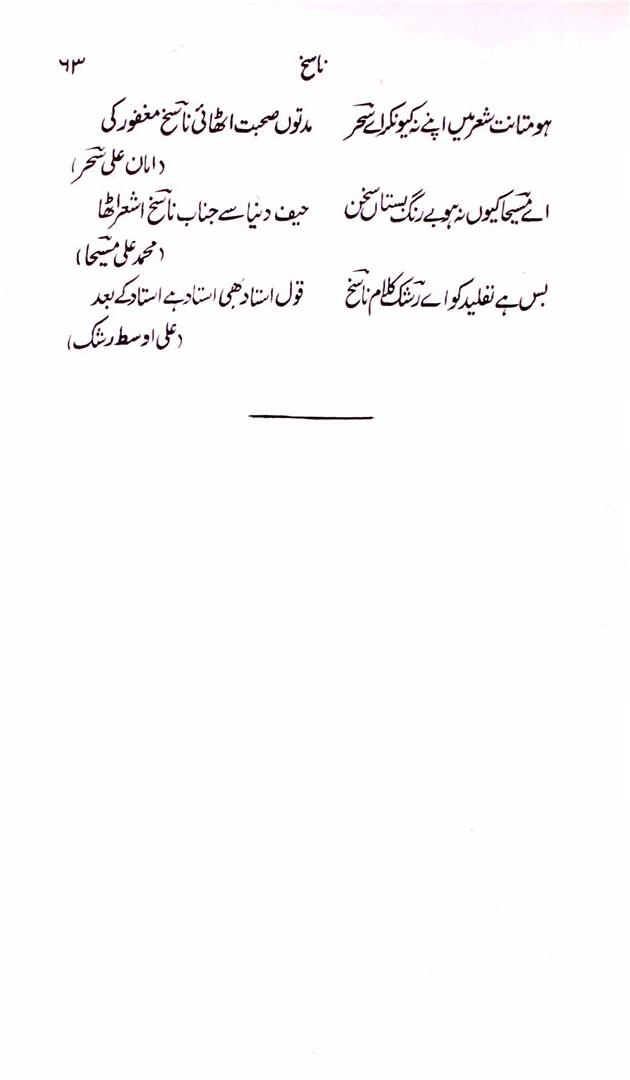 ناسخ ۶۳
ہو متانت شعر میں اپنے نہ کیونکر اے سحر مدتوں صحبت اٹھائی ناسخ مغفور کی
(امان علی سحر)
اے مسیحا کیوں نہ ہو بے رنگ بستان سخن حیف دنیا سے جناب ناسخ اشعر اٹھا
(محمد علی مسیحا)
بس ہے تقلید کو اے رشک کلام ناسخ قول استاد بھی استاد ہے استاد کے بعد
(علی اوسط رشک)